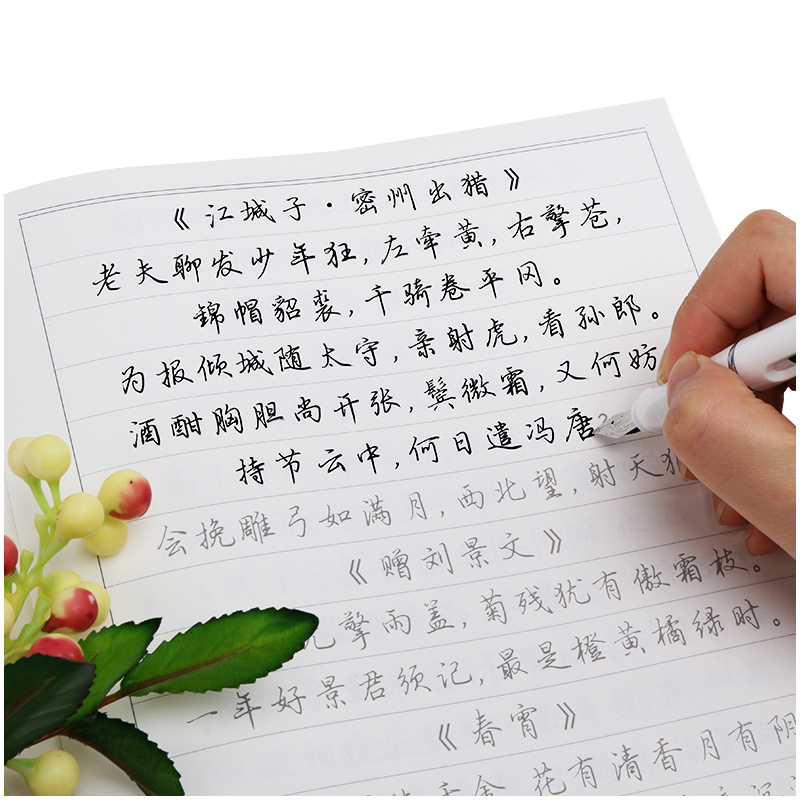 《江城子·密州出猎》
老夫聊发少年狂,左牵黄,右擎苍,
錦帽貂裘,千骑卷平冈。
为报倾城随太守,亲射虎,看孙郎。
酒酣胸胆尚开张,鬓微霜,又何妨
持节云中,何日遣冯唐?
会挽雕弓如满月,西北望,射天狼
《赠刘景文》
擎雨盖,菊残犹有傲霜枝。
一年好景君须记,最是橙黄橘绿时。
《春宵》
花有清香月有阴